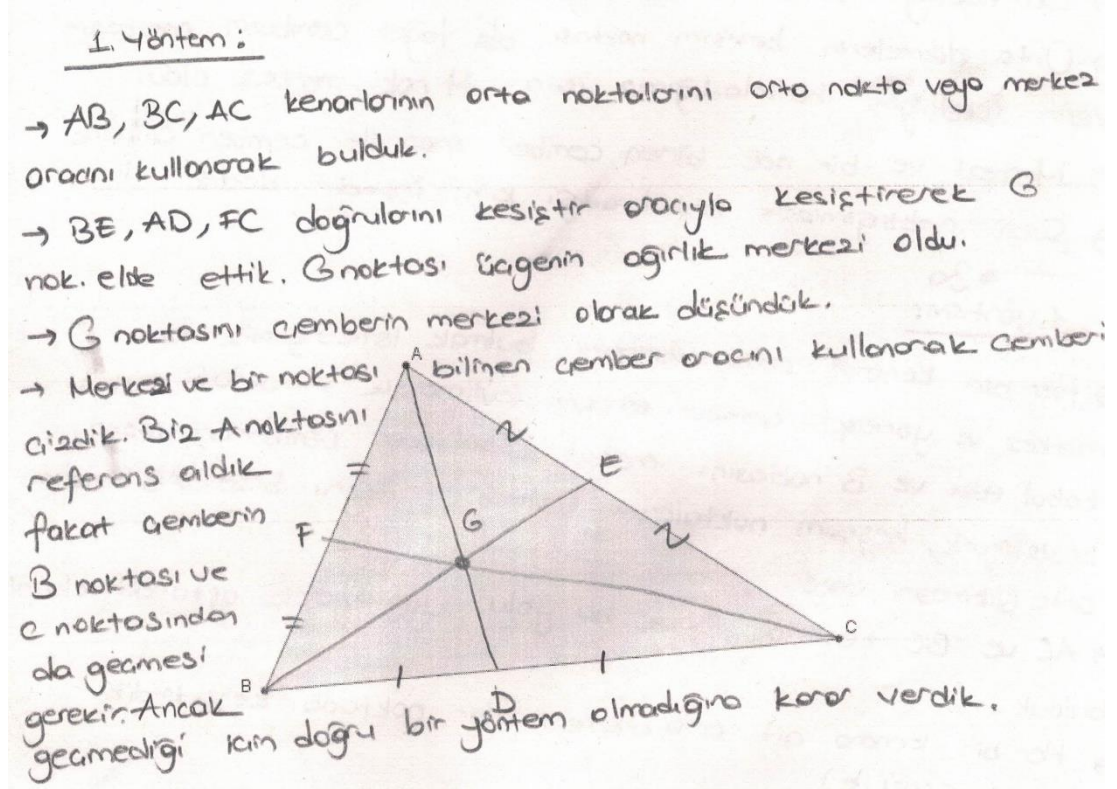 1. Yöntem:
→ AB, BC, AC kenarlarının orta noktalarını orta nokta veya merkez
aracını kullanarak bulduk.
→ BE, AD, FC doğrularını kesiştir aracıyla kesiştirerek G
nok. elde ettik. G noktası üçgenin ağırlik merkezi oldu.
→ G noktasını çemberin merkezi olarak düşündük.
→ Merkezi ve bir noktası bilinen çember aracını kullanarak çemberi
çizdik. Biz A noktasını
referans aldık
fakat çemberin
B noktası ve
C noktasından
da geçmesi
gerekir. Ancak
geçmediği için doğru bir yöntem olmadığına karar verdik.
A
E
G
F
C
B
D